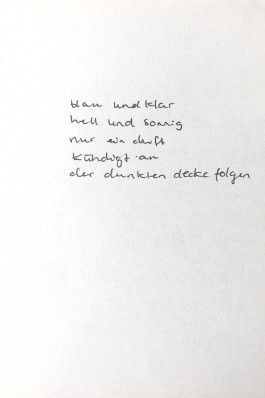 blau und klar
hell und sonnig
nur ein duft
kündigt an
der dunklen decke folgen